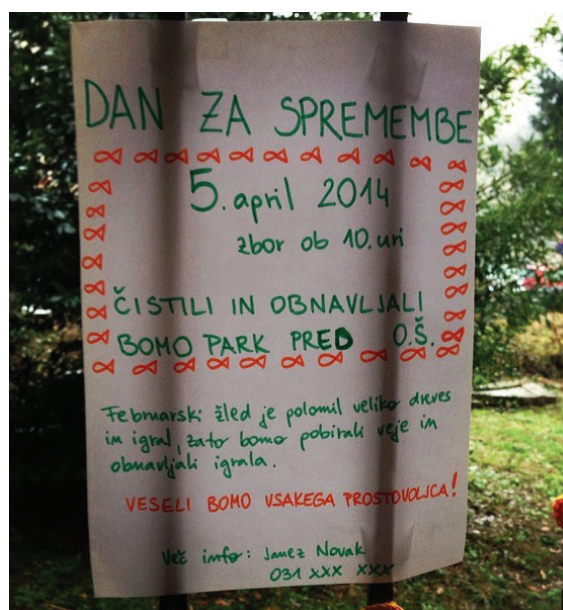 DAN ZA SPREMEMBE
5. april 2014
zbor ob 10. uri
ČISTILI IN OBNAVLJALI
BOMO PARK PRED O.Š.
Februarski žled je polomil veliko dreves
in igral, zato bomo pobirali veje in
obnavljali igrala.
VESELI BOMO VSAKEGA PROSTOVOLJCA!
Več info: Janez Novak
031 xxx xxx